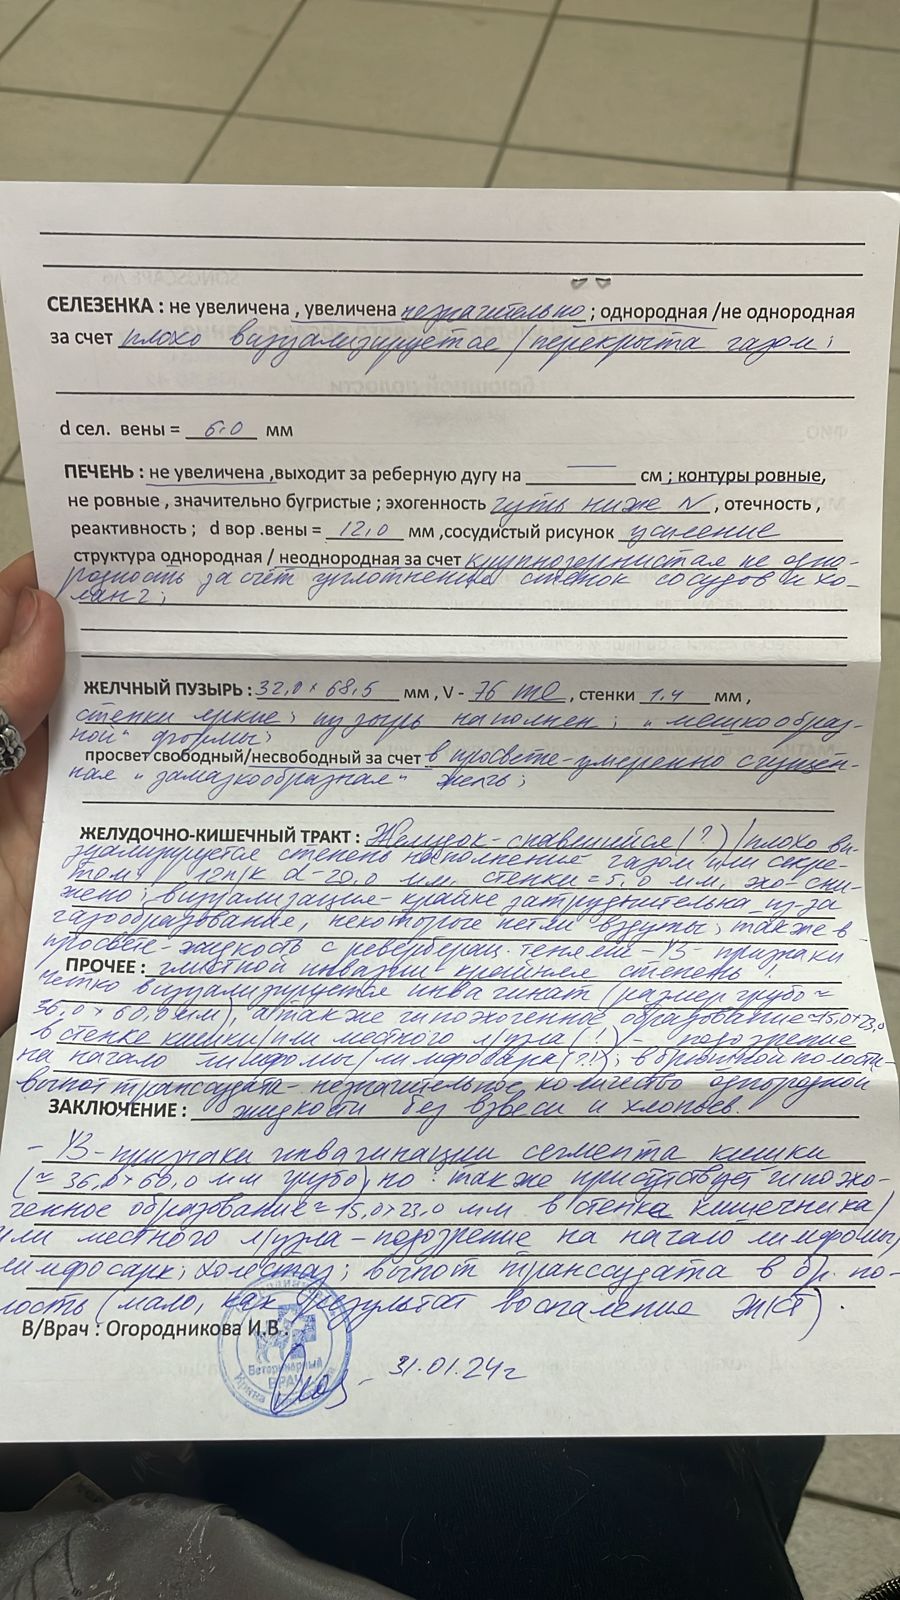 СЕЛЕЗЕНКА : не увеличена , увеличена незначительно ; однородная /не однородная
за счет плохо визуализируется / перекрыта газом ;
d сел. вены = 6.0 мм
ПЕЧЕНЬ : не увеличена ,выходит за реберную дугу на — см ; контуры ровные,
не ровные , значительно бугристые ; эхогенность чуть ниже N , отечность ,
реактивность ; d вор .вены = 12,0 мм ,сосудистый рисунок усиление
структура однородная / неоднородная за счет крупнозернистая не одно-
родность за счёт уплотнения стенок сосудов и хо-
ланг;
ЖЕЛЧНЫЙ ПУЗЫРЬ : 32,0 × 68,5 мм , V - 76 ml , стенки 1.4 мм ,
стенки яркие; пузырь наполнен; "мешкообраз-
ной" формы;
просвет свободный/несвободный за счет в просвете - умеренно сгущен-
ная "замазкообразная" желчь;
ЖЕЛУДОЧНО-КИШЕЧНЫЙ ТРАКТ : Желудок - спавшийся (?) / плохо ви-
зуализируется степень наполнения газом или секре-
том; 12п/к d - 20,0 мм, стенки = 5,0 мм, эхо- сни-
жено; визуализация - крайне затруднительна из-за
газообразование, некоторые петли вздуты; также в
просвете - жидкость с ревербера́ц. тенями - УЗ - признаки
ПРОЧЕЕ : глистной инвазии крайняя степень !
Четко визуализируется инвагинат (размер грубо ≈
36,0 × 60,0 мм), а также гипоэхогенное образование ≈ 15,0×23,0
в стенке кишки/или местного л/узла (!) - подозрение
на начало лимфомы/лимфосарк (?!); в брюшной полости -
выпот транссудата - незначительное количество однородной
ЗАКЛЮЧЕНИЕ : жидкости без взвеси и хлопьев.
- УЗ - признаки инвагинации сегмента кишки
(≈ 36,0 × 60,0 мм грубо), но : также присутствует гипоэхо-
генное образование ≈ 15,0×23,0 мм в стенке кишечника/
или местного л/узла - подозрение на начало лимфомы/
лимфосарк; холестаз; выпот транссудата в бр. по-
лость (мало, как результат воспаление ЖКТ).
В/Врач : Огородникова И.В.
Ветеринарный
ВРАЧ
31.01.24г